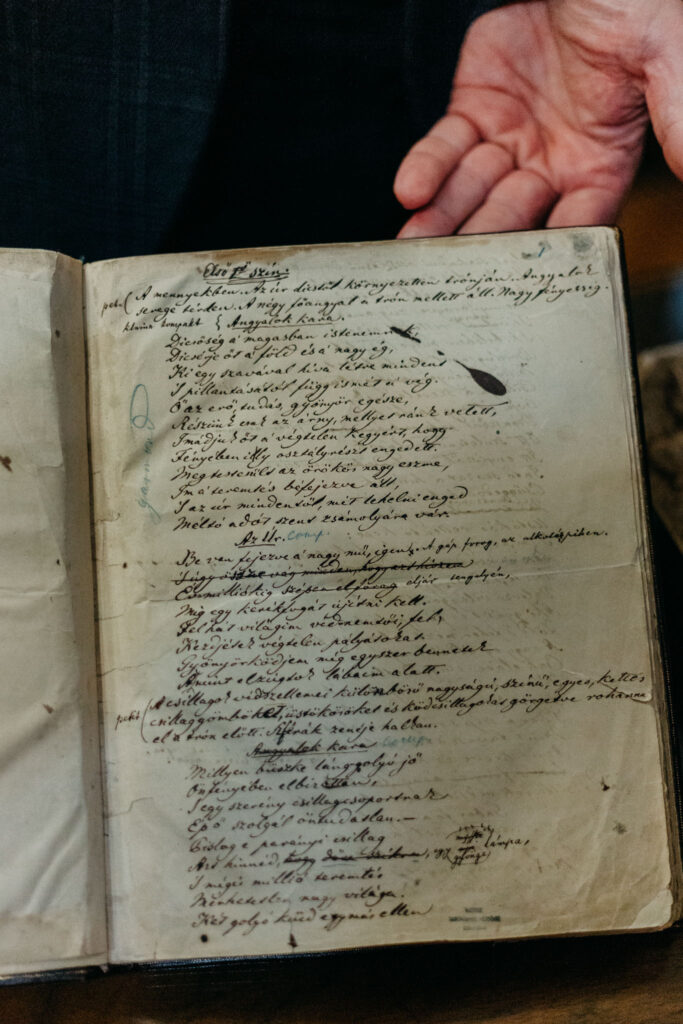 Első szín.
A mennyekben. Az úr dicstől környezetten trónján. Angyalok
serege térden. A négy főangyal a trón mellett áll. Nagy fényesség.
kompakt Angyalok kara.
Dicsőség a magasban istenemnek,
Dicsérje őt a föld és a nagy ég,
Ki egy szavával híva létre mindent
S pillantásától függ ismét a vég.
Ő az erő, tudás, gyönyör egésze,
Részünk csak az árny, mellyet ránk vetett,
Imádjuk őt a végtelen kegyért, hogy
Fényében illy osztályrészt engedett.
Megtestesült az örökös nagy eszme,
Im a teremtés béfejezve állt,
S az úr mindentől, mit lehelni enged
Méltó adót szent zsámolyára vár.
garmond
Az Úr. comp.
Be van fejezve a nagy mű, igen. A gép forog, az alkotó pihen.
Évmilliókig eljár tengelyén,
Mig egy kerékfogát ujítni kell.
Fel hát világim védnemtői, fel,
Kezdjétek végtelen pályátokat.
Gyönyörködjem még egyszer bennetek
Amint elzúgtok lábaim alatt.
petit A csillagok védszellemei különböző nagyságú, színű, egyes, kettős
csillaggömböket, üstökösöket és ködcsillagokat görgetve rohanna
el a trón előtt. Sférák zenéje halkan.
Angyalok kara comp.
Millyen büszke lánggolyó jő
Önfényében elbizottan,
S egy szerény csillagcsoportnak
Ép ő szolgál öntudatlan. —
Pislog e parányi csillag
Azt hinnéd, egy gyönge lámpa,
S mégis millió teremtés
Mérhetetlen nagy világa.
Két golyó küzd egymás ellen